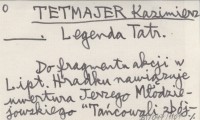 0
TETMAJER Kazimierz
——. Legenda Tatr.
Do fragmentu akcji w
Lipt. Hradku nawiązuje
uwertura Jerzego Młodzie-
jowskiego "Tańcowali zbój-